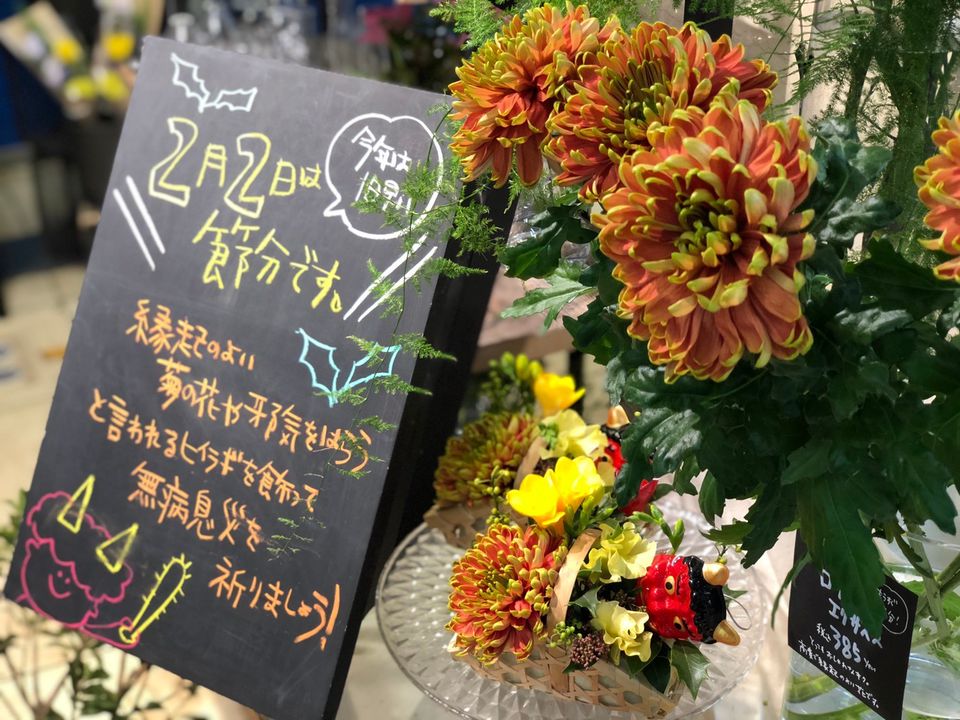 2月2日は
今年は
1日早い
節分です。
縁起のよい
菊の花や邪気をはらう
と言われるヒイラギを飾って
無病息災を
祈りましょう!
エリザベス
税込385